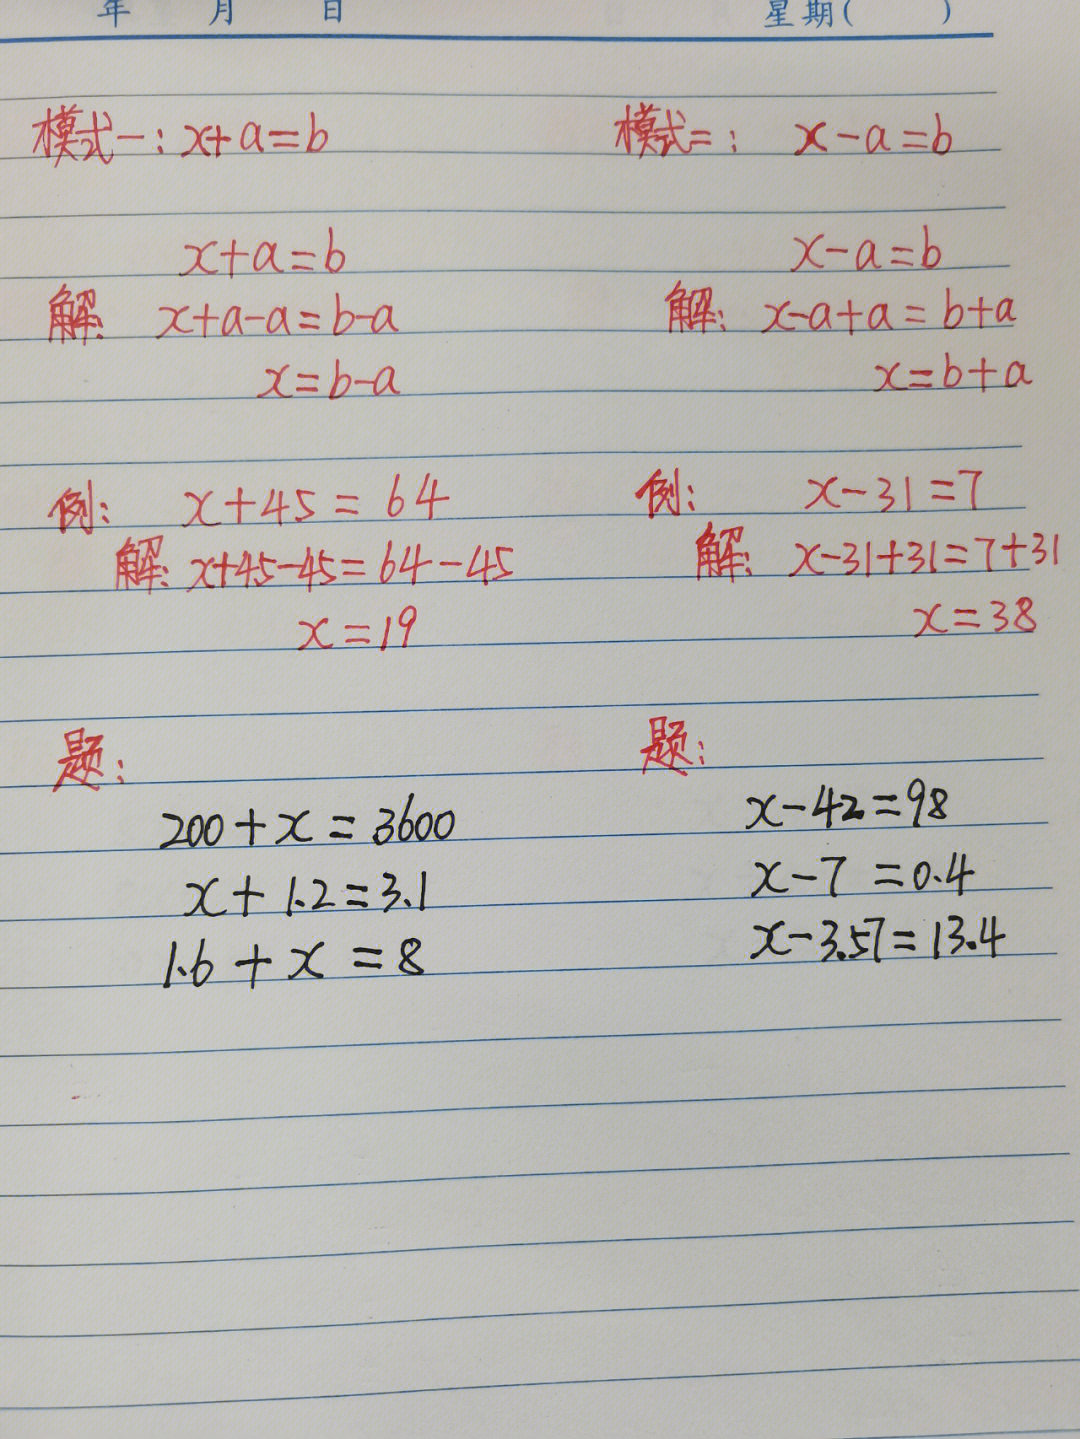 年 月 日 星期( )
模式一: x+a=b
x+a=b
解: x+a-a=b-a
x=b-a
例: x+45=64
解: x+45-45=64-45
x=19
题:
200+x=3600
x+1.2=3.1
1.6+x=8
模式二: x-a=b
x-a=b
解: x-a+a=b+a
x=b+a
例: x-31=7
解: x-31+31=7+31
x=38
题:
x-42=98
x-7=0.4
x-3.57=13.4